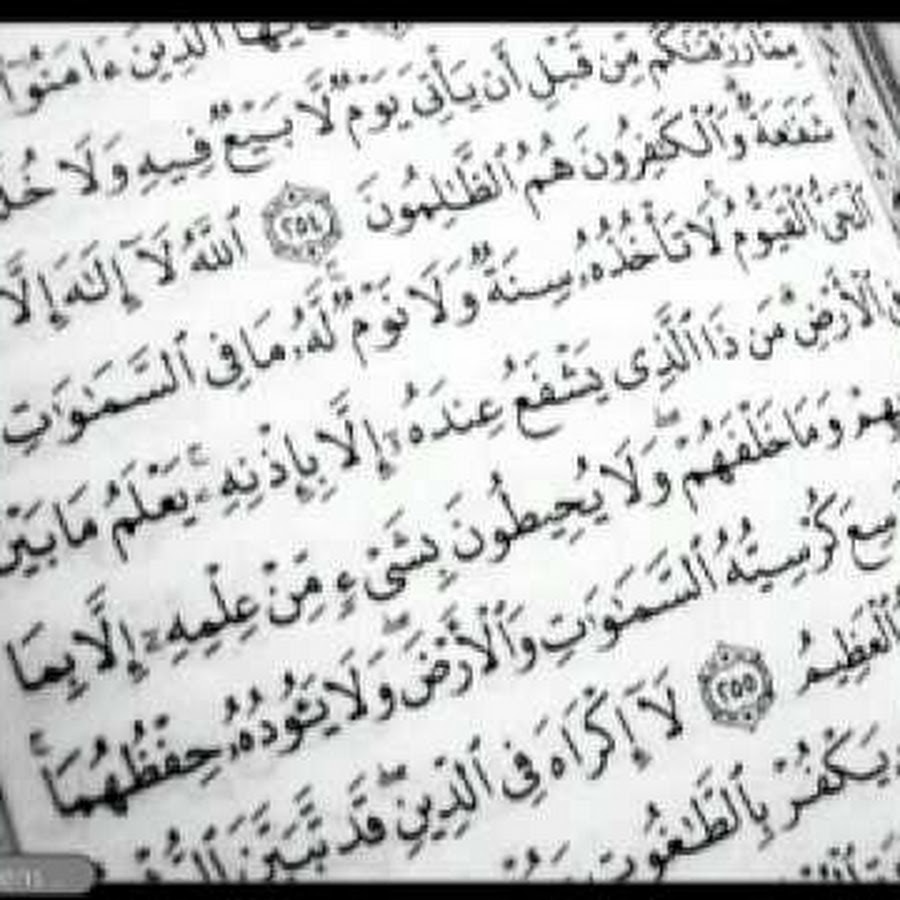 يَٰٓأَيُّهَا ٱلَّذِينَ ءَامَنُوٓا۟
مِمَّا رَزَقْنَٰكُم مِّن قَبْلِ أَن يَأْتِىَ يَوْمٌ لَّا بَيْعٌ فِيهِ وَلَا
شَفَٰعَةٌ وَٱلْكَٰفِرُونَ هُمُ ٱلظَّٰلِمُونَ ٢٥٤ ٱللَّهُ لَآ إِلَٰهَ إِلَّا
ٱلْحَىُّ ٱلْقَيُّومُ لَا تَأْخُذُهُۥ سِنَةٌ وَلَا نَوْمٌ لَّهُۥ مَا فِى ٱلسَّمَٰوَٰتِ
ٱلْأَرْضِ مَن ذَا ٱلَّذِى يَشْفَعُ عِندَهُۥٓ إِلَّا بِإِذْنِهِۦ يَعْلَمُ مَا بَيْنَ
وَمَا خَلْفَهُمْ وَلَا يُحِيطُونَ بِشَىْءٍ مِّنْ عِلْمِهِۦٓ إِلَّا بِمَا
كُرْسِيُّهُ ٱلسَّمَٰوَٰتِ وَٱلْأَرْضَ وَلَا يَـُٔودُهُۥ حِفْظُهُمَا
ٱلْعَظِيمُ ٢٥٥ لَآ إِكْرَاهَ فِى ٱلدِّينِ قَد تَّبَيَّنَ
يَكْفُرْ بِٱلطَّٰغُوتِ